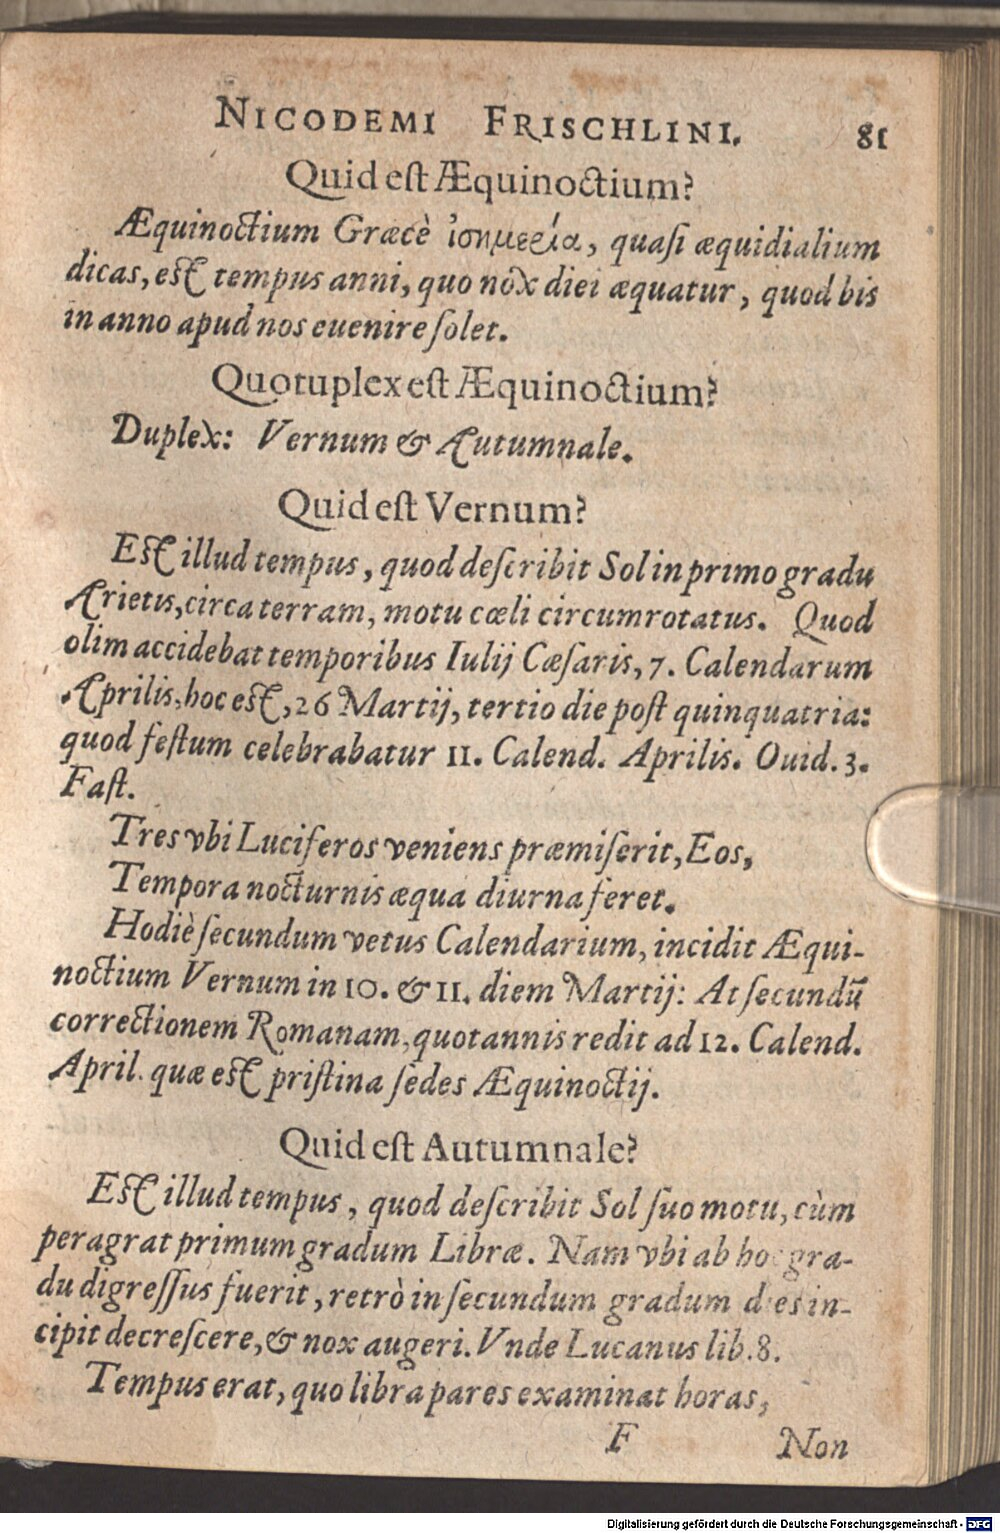 NICODEMI FRISCHLINI. 81
Quid eſt Æquinoctium?
Æquinoctium Græcè ἰσημερία, quaſi æquidialium
dicas, eſt tempus anni, quo nox diei æquatur, quod bis
in anno apud nos euenire ſolet.
Quotuplex eſt Æquinoctium?
Duplex: Vernum & Autumnale.
Quid eſt Vernum?
Eſt illud tempus, quod deſcribit Sol in primo gradu
Arietis, circa terram, motu cœli circumrotatus. Quod
olim accidebat temporibus Iulij Cæſaris, 7. Calendarum
Aprilis, hoc eſt, 26 Martij, tertio die poſt quinquatria:
quod feſtum celebrabatur 11. Calend. Aprilis. Ouid. 3.
Faſt.
Tres vbi Luciferos veniens præmiſerit, Eos,
Tempora nocturnis æqua diurna feret.
Hodiè ſecundum vetus Calendarium, incidit Æqui-
noctium Vernum in 10. & 11. diem Martij: At ſecundū
correctionem Romanam, quotannis redit ad 12. Calend.
April. quæ eſt priſtina ſedes Æquinoctij.
Quid eſt Autumnale?
Eſt illud tempus, quod deſcribit Sol ſuo motu, cùm
peragrat primum gradum Libræ. Nam vbi ab hoc gra-
du digreſſus fuerit, retrò in ſecundum gradum dies in-
cipit decreſcere, & nox augeri. Vnde Lucanus lib. 8.
Tempus erat, quo libra pares examinat horas,
F Non
Digitalisierung gefördert durch die Deutsche Forschungsgemeinschaft - DFG